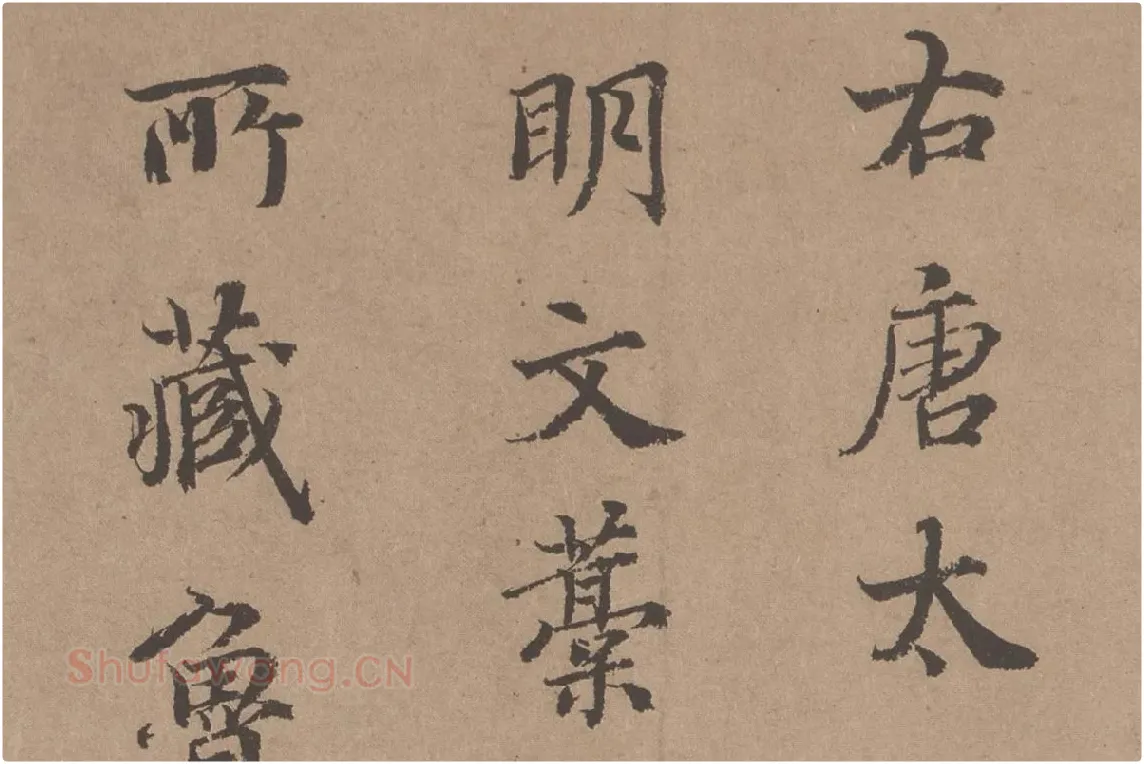 右唐太
明文藁
所藏魯
Shufawang.CN